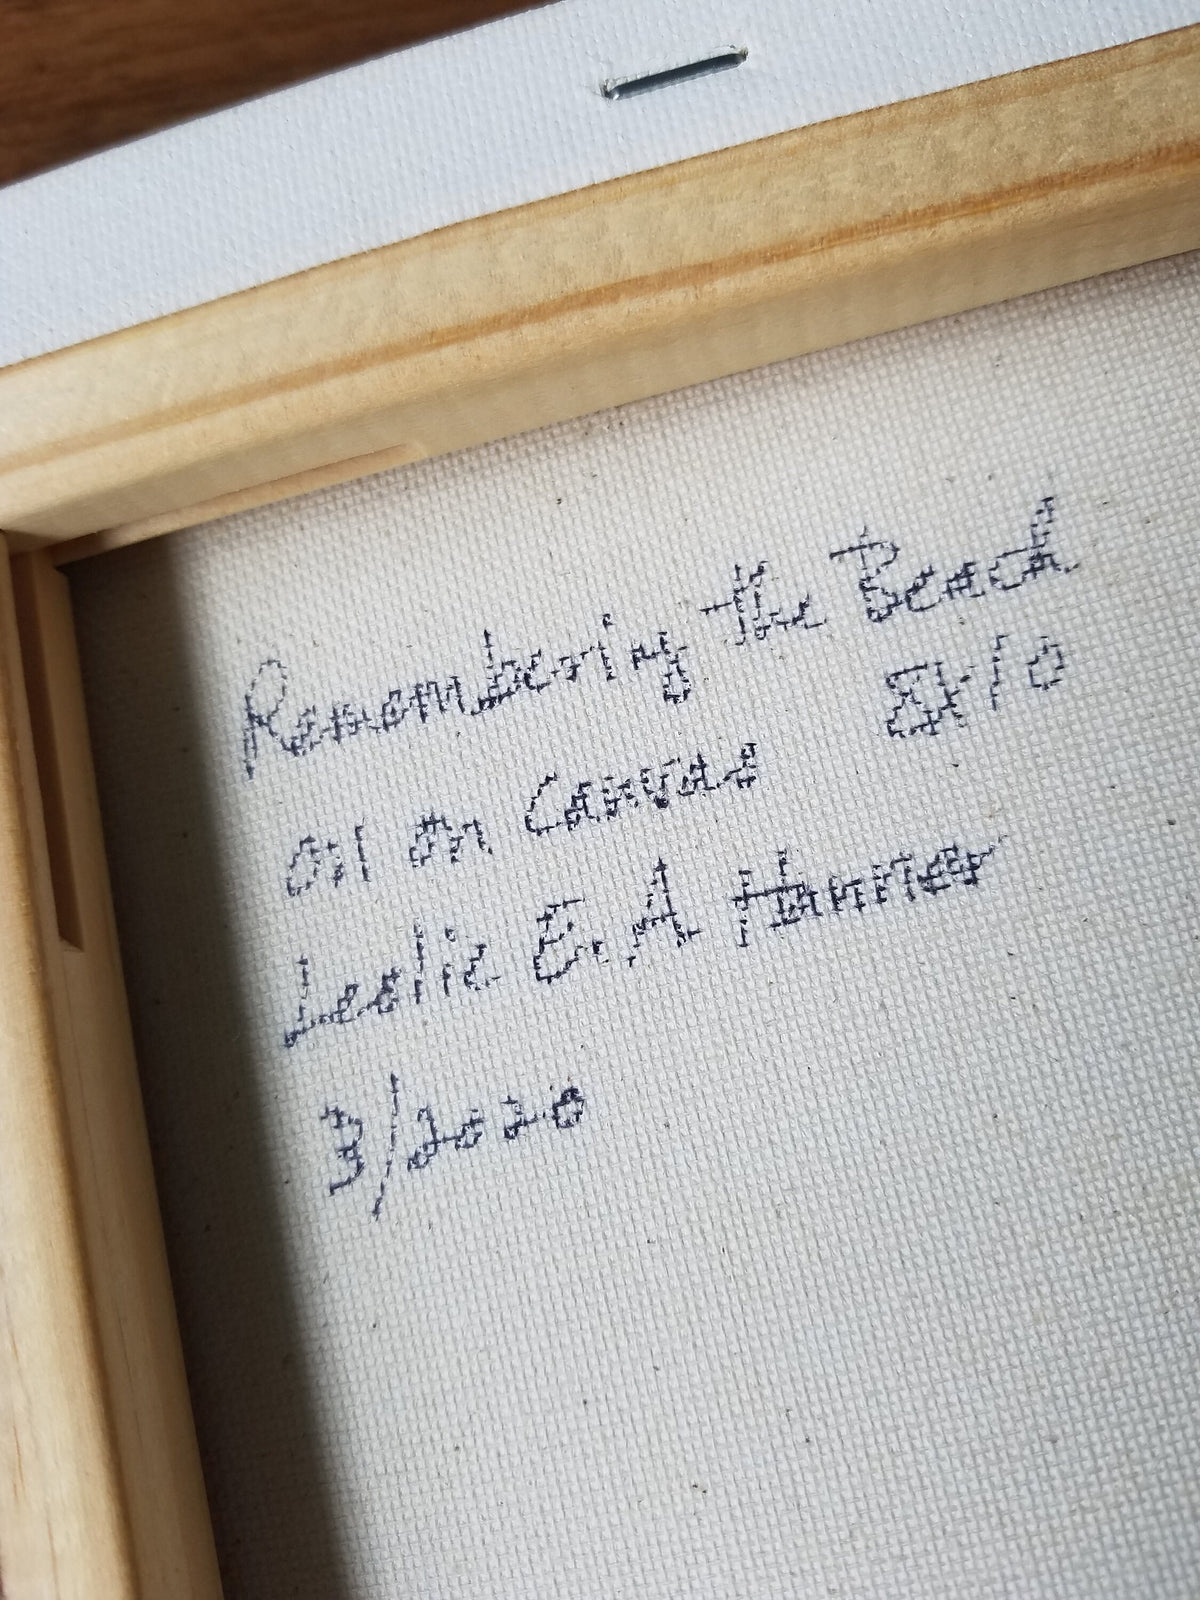 Remembering the Beach
8x10
oil on Canvas
Leslie E. A
3/2020